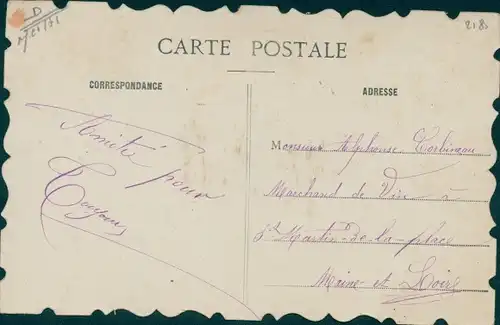 D
2180
CARTE POSTALE
CORRESPONDANCE
Amitié pour
Toujours
ADRESSE
Monsieur Alphonse Corbineau
Marchand de Vin à
St Martin-de-la-place
Maine-et-Loire